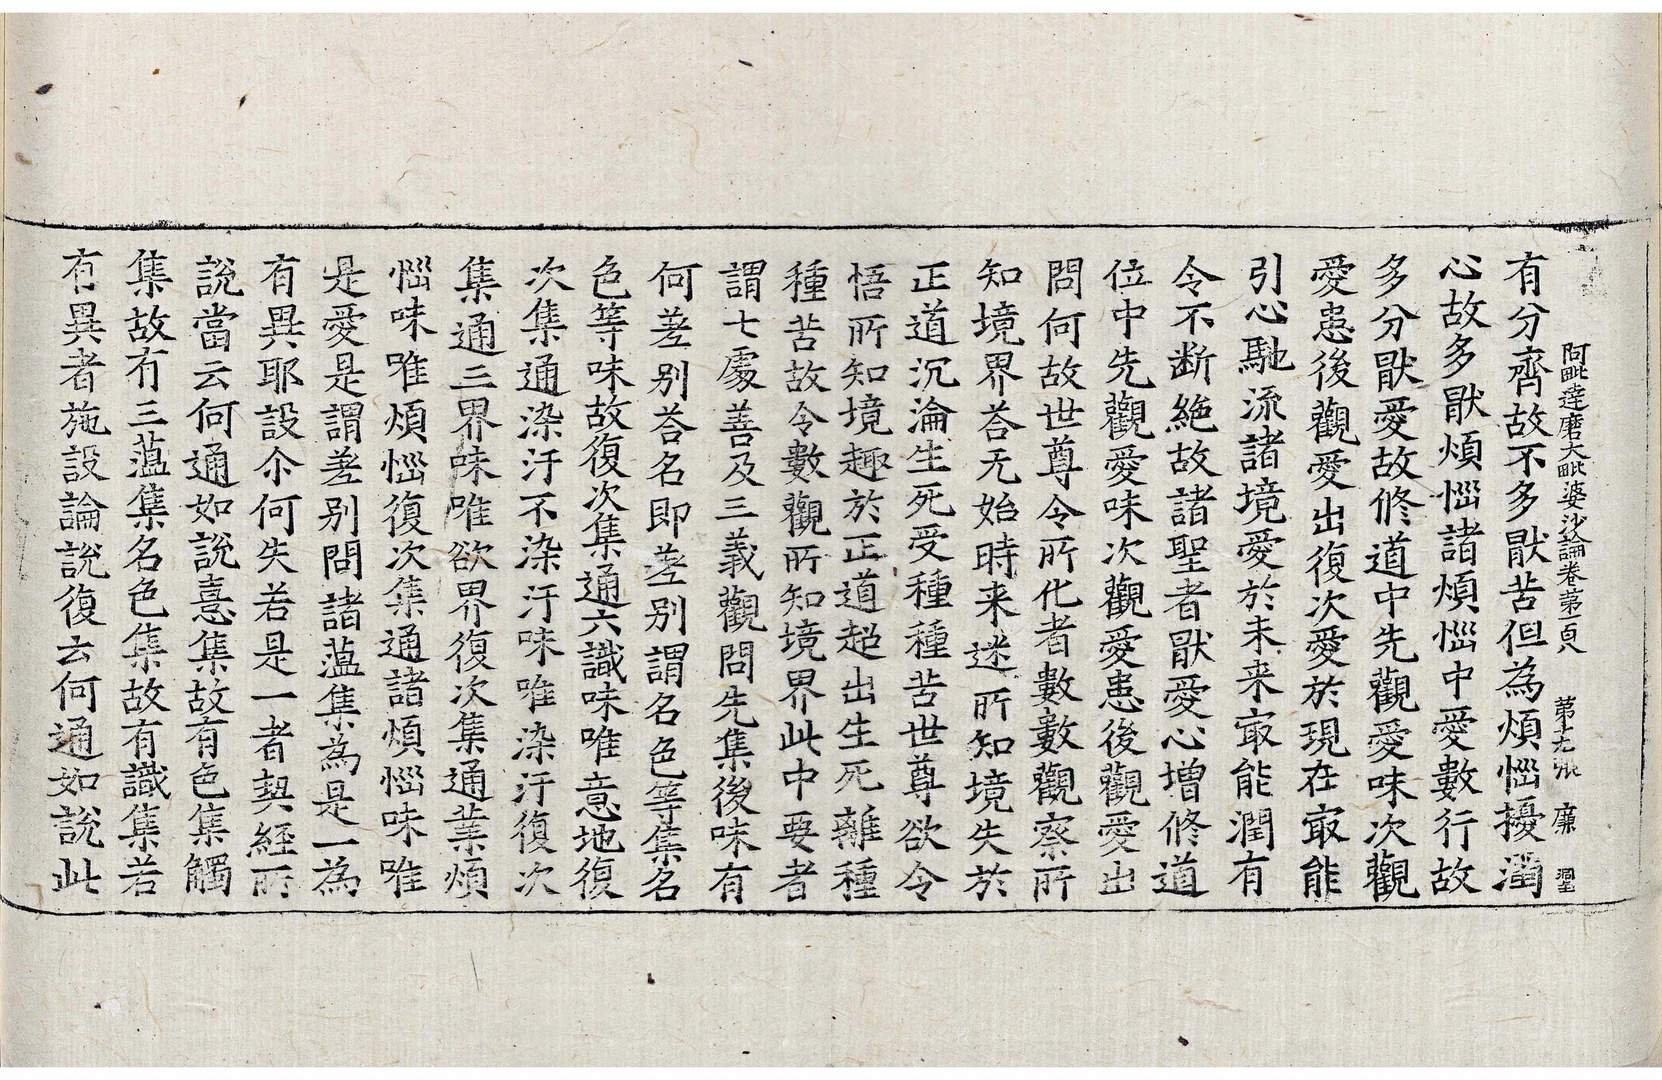 阿毗達磨大毗婆沙論卷第一百　第十九張　廉
有分齊故不多猒苦但為煩惱擾濁
心故多猒煩惱諸煩惱中愛數行故
多分猒愛故修道中先觀愛味次觀
愛患後觀愛出復次愛於現在㝡能
引心馳流諸境愛於未来㝡能潤有
令不断絶故諸聖者猒愛心增修道
位中先觀愛味次觀愛患後觀愛出
問何故世尊令所化者數數觀察所
知境界荅无始時来迷所知境失於
正道沉淪生死受種種苦世尊欲令
悟所知境趣於正道超出生死離種
種苦故令數觀所知境界此中要者
謂七處善及三義觀問先集後味有
何差别荅名即差别謂名色等集名
色等味故復次集通六識味唯意地復
次集通染汙不染汙味唯染汙復次
集通三界味唯欲界復次集通業煩
惱味唯煩惱復次集通諸煩惱味唯
是愛是謂差别問諸薀集為是一為
有異耶設尒何失若是一者契經所
說當云何通如說憙集故有色集觸
集故有三薀集名色集故有識集若
有異者施設論說復云何通如說此